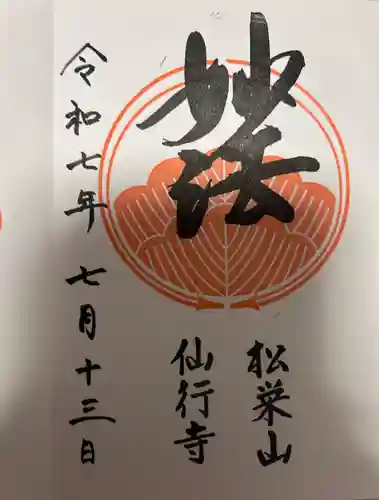 妙法
松栄山
仙行寺
令和七年 七月十三日